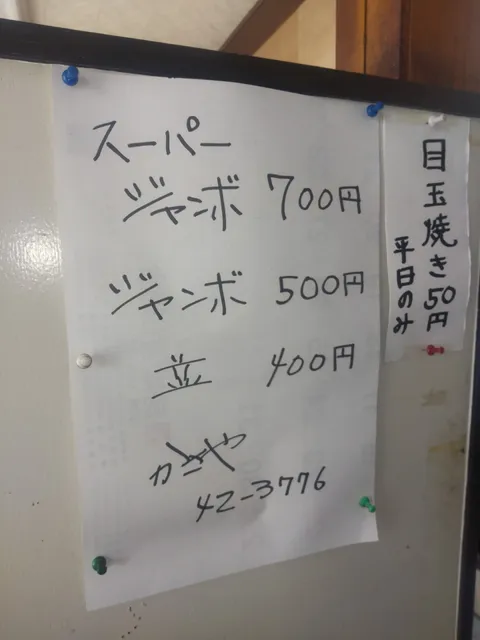 スーパー
ジャンボ 700円
ジャンボ 500円
並 400円
42-3776
目玉焼き50円
平日のみ